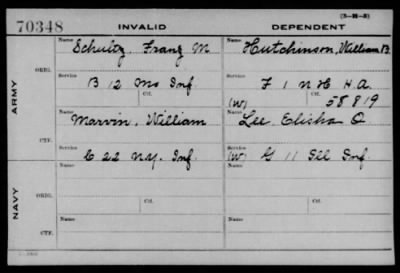 (3-M-3)
70348 INVALID DEPENDENT
Name Schultz, Franz M. Name Hutchinson, William B.
ORIG.
Service B 12 Mo Inf. Service F 1 N H H. A.
Ctf. (W) Ctf. 58819
ARMY
Name Marvin, William Name Lee, Elisha O.
CTF.
Service C 22 N.Y. Inf. Service (W) G 11 Ill Inf.
Name Name
ORIG.
Service Ctf. Service Ctf.
NAVY
Name Name
CTF.
Service Service